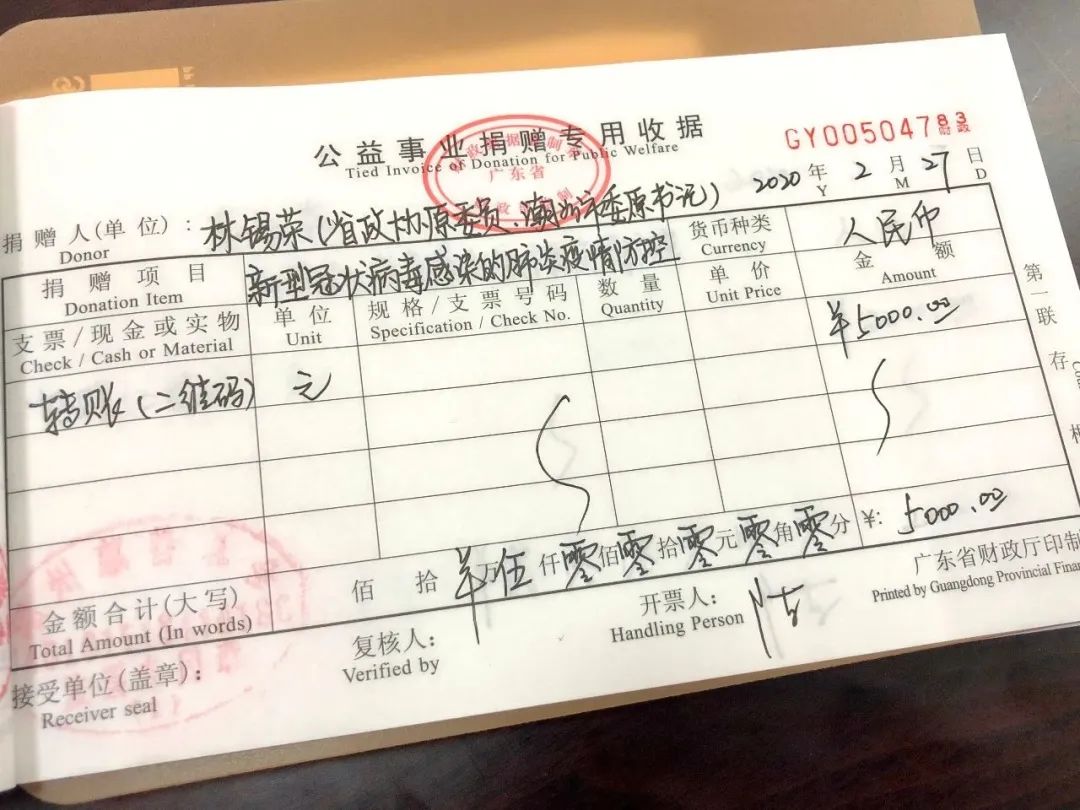 公益事业捐赠专用收据
Tied Invoice of Donation for Public Welfare
GY00504783
财政
广东省
2020 年 2 月 27 日
Y M D
捐赠人(单位): 林锡荣(省政协原委员、潮州市委原书记)
Donor
货币种类 人民币
Currency
捐赠项目 新型冠状病毒感染的肺炎疫情防控
Donation Item
支票/现金或实物 单位 规格/支票号码 数量 单价 金额
Check / Cash or Material Unit Specification / Check No. Quantity Unit Price Amount
¥5000.00
转账(二维码) 元
金额合计(大写) 佰 拾 ¥万 伍仟 零佰 零拾 零元 零角 零分 ¥: 5000.00
Total Amount (In words)
接受单位(盖章): 复核人: 开票人: 广东省财政厅印制
Receiver seal Verified by Handling Person Printed by Guangdong Provincial Finan
第一联 存根